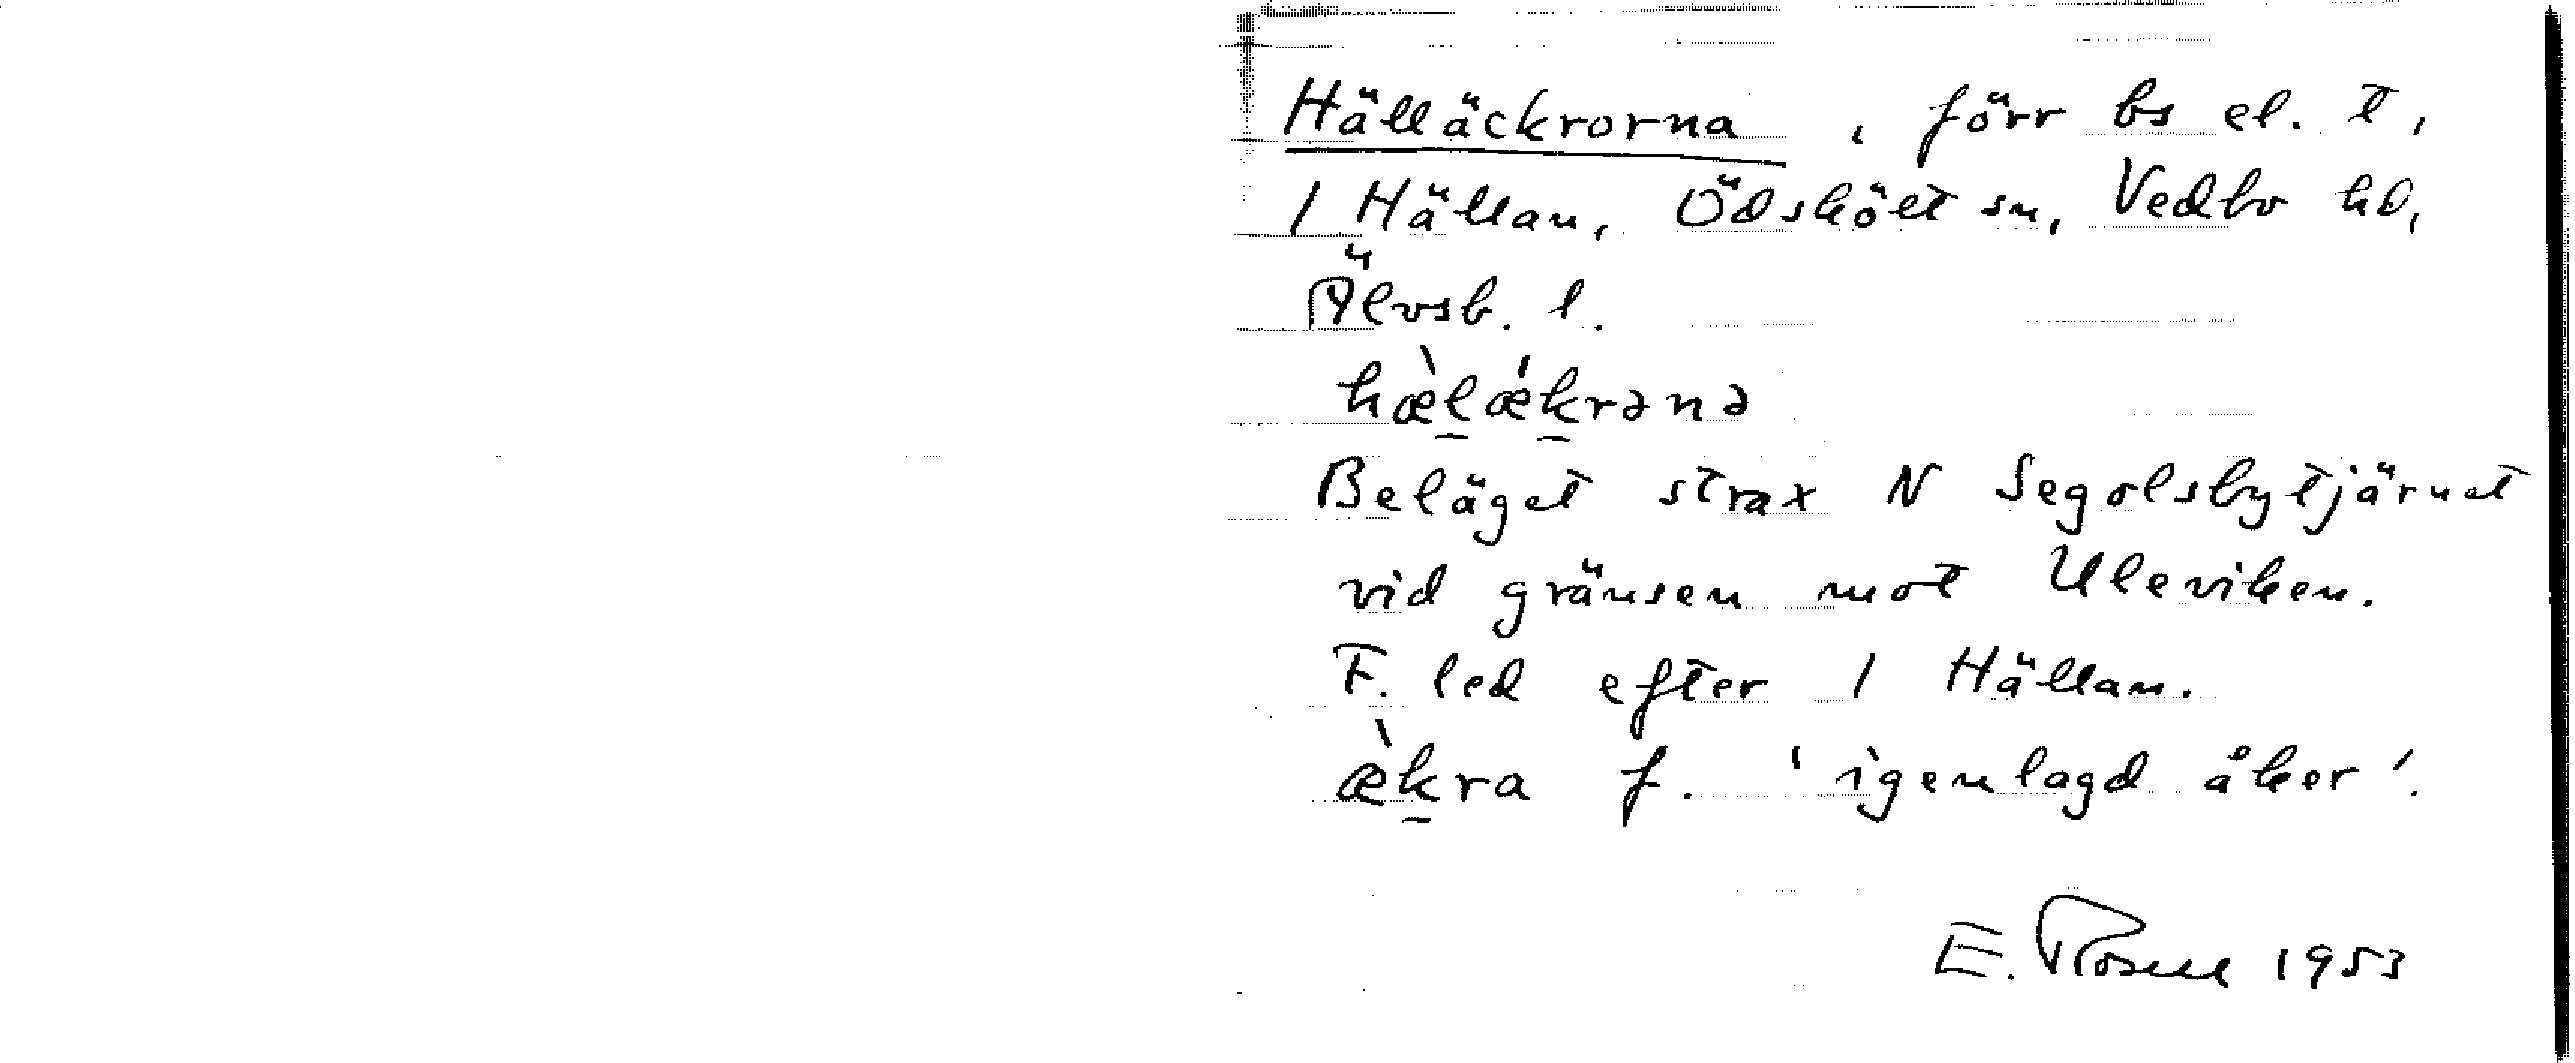 Hälläckrorna, förr bs el. t,
1 Hällan, Ödskölt sn, Vedbo hd,
Älvsb. l.
hæ̀l̠ǽk̠rənə
Beläget strax N Segolsbytjärnet
vid gränsen mot Uleviken.
F. led efter 1 Hällan.
æ̀k̠ra f. 'igenlagd åker'.
E. Rosell 1953